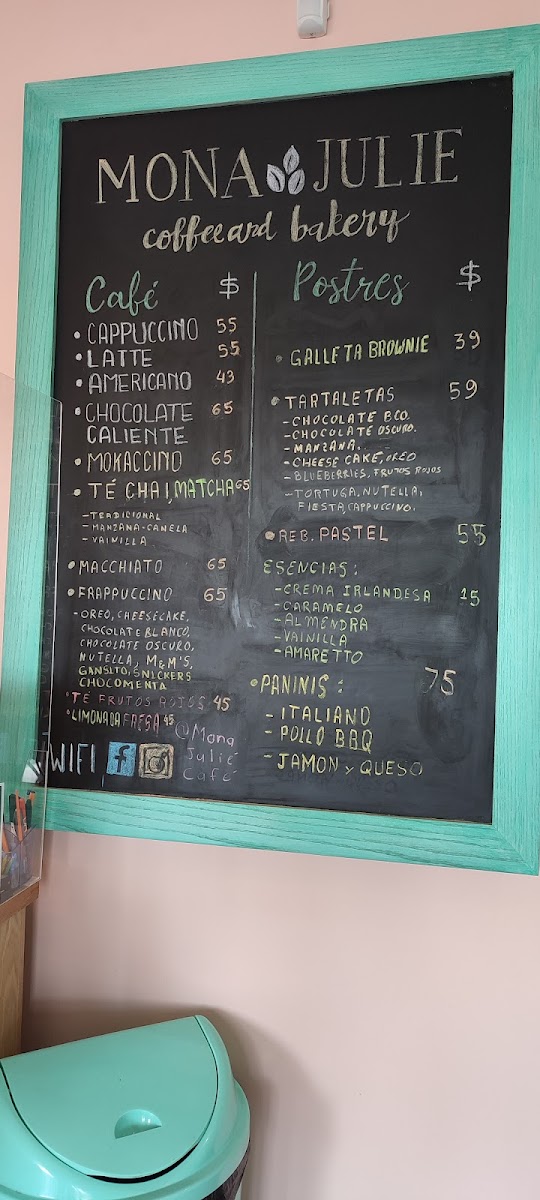 MONA JULIE
coffee and bakery
Café $
• CAPPUCCINO 55
• LATTE 55
• AMERICANO 43
• CHOCOLATE 65
CALIENTE
• MOKACCINO 65
• TÉ CHAI, MATCHA 65
- TRADICIONAL
- MANZANA-CANELA
- VAINILLA
• MACCHIATO 65
• FRAPPUCCINO 65
- OREO, CHEESECAKE,
CHOCOLATE BLANCO,
CHOCOLATE OSCURO,
NUTELLA, M&M'S,
GANSITO, SNICKERS
CHOCOMENTA
• TÉ FRUTOS ROJOS 45
• LIMONADA FRESA 45
WIFI f
@Mona
Julié
Café
Postres $
• GALLETA BROWNIE 39
• TARTALETAS 59
- CHOCOLATE BCO.
- CHOCOLATE OSCURO.
- MANZANA.
- CHEESE CAKE, OREO
- BLUEBERRIES, FRUTOS ROJOS
- TORTUGA, NUTELLA,
FIESTA, CAPPUCCINO.
• REB. PASTEL 55
ESENCIAS:
- CREMA IRLANDESA 15
- CARAMELO
- ALMENDRA
- VAINILLA
- AMARETTO
• PANINIS: 75
- ITALIANO
- POLLO BBQ
- JAMON y QUESO